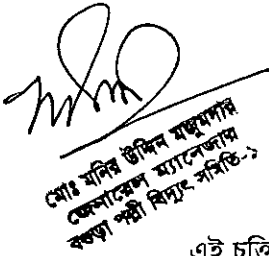 মোঃ মনির উদ্দিন মজুমদার
জেনারেল ম্যানেজার
বগুড়া পল্লী বিদ্যুৎ সমিতি-১
এই চুক্তি